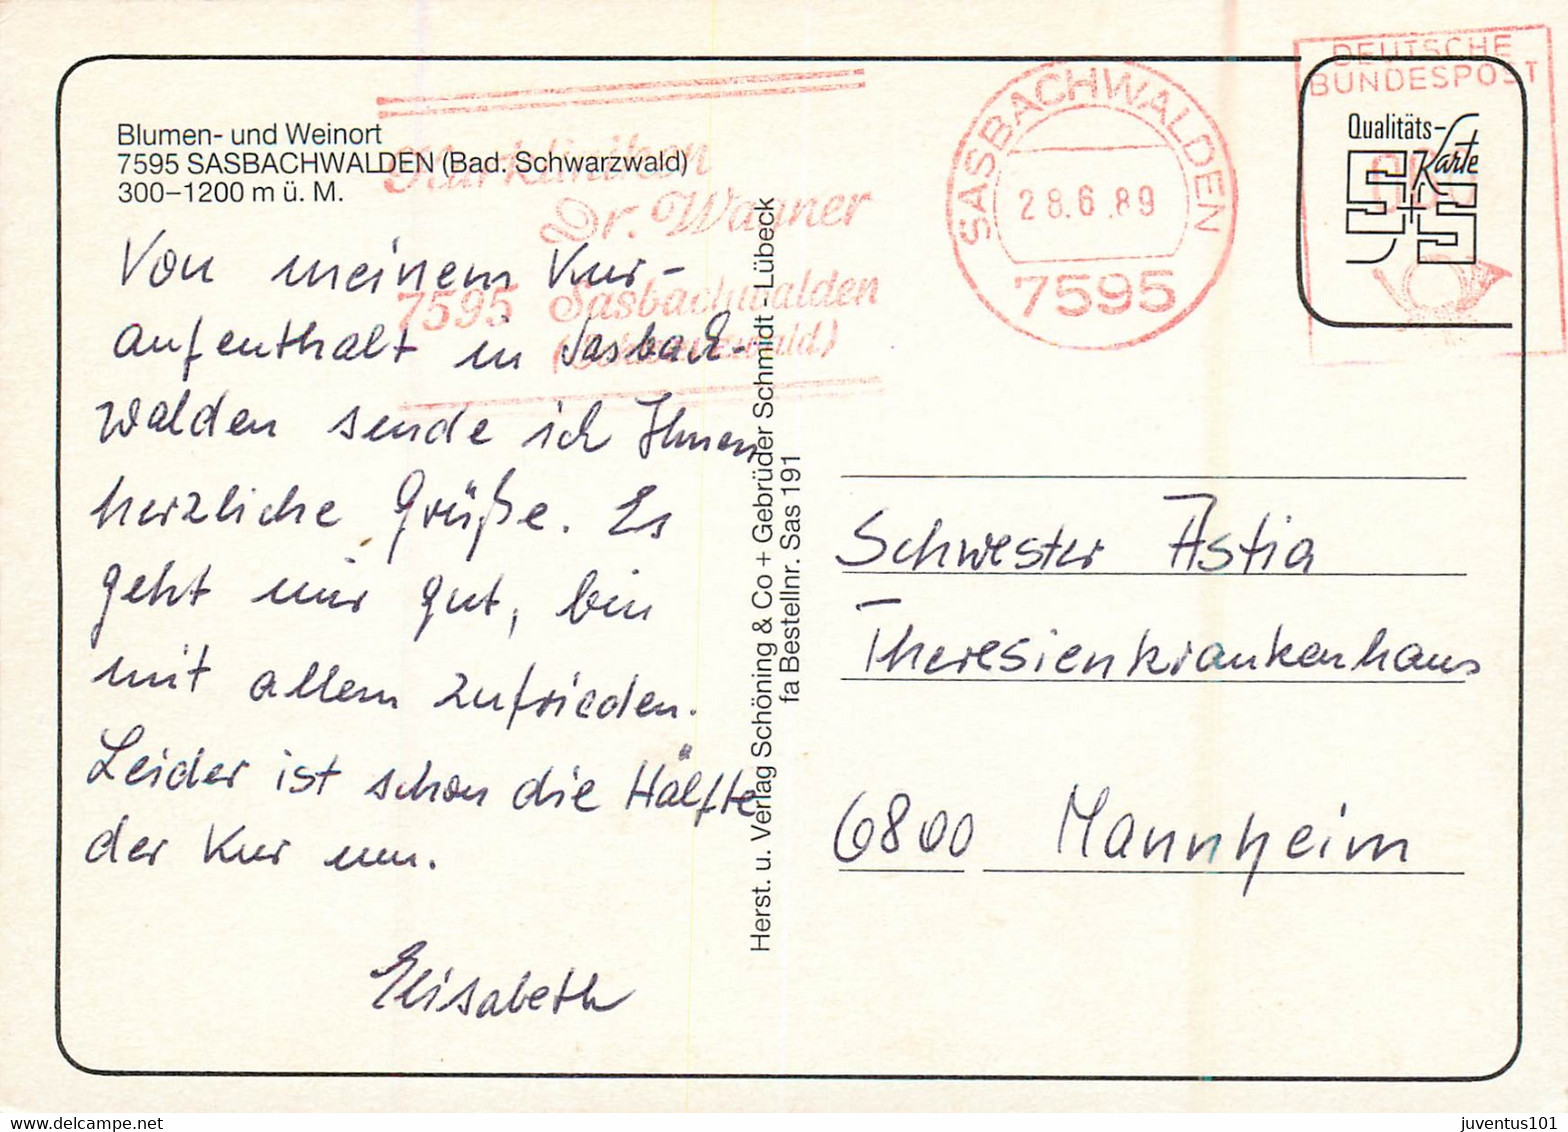 Blumen- und Weinort
7595 SASBACHWALDEN (Bad. Schwarzwald)
300–1200 m ü. M.
Kurkliniken
Dr. Wagner
7595 Sasbachwalden
(Schwarzwald)
SASBACHWALDEN
28.6.89
7595
DEUTSCHE
BUNDESPOST
Qualitäts-
Karte
S+S
Von meinem Kur-
aufenthalt in Sasbach-
walden sende ich Ihnen
herzliche Grüße. Es
geht mir gut, bin
mit allem zufrieden.
Leider ist schon die Hälfte
der Kur um.
Elisabeth
Herst. u. Verlag Schöning & Co + Gebrüder Schmidt - Lübeck
fa Bestellnr. Sas 191
Schwester Astia
Theresienkrankenhaus
6800 Mannheim
juventus101